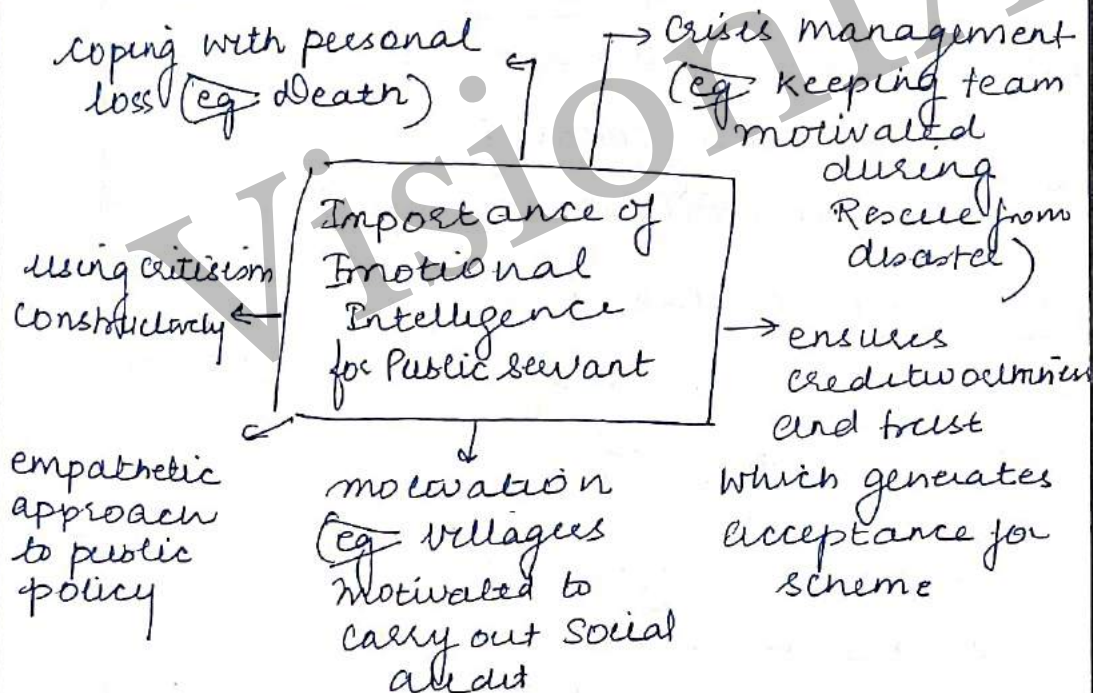 coping with personal
loss (eg Death)
→ Crisis management
(eg Keeping team
motivated
during
Rescue from
disaster)
Importance of
Emotional
Intelligence
for Public servant
using critisism
constructively
→ ensures
creditworthiness
and trust
which generates
acceptance for
scheme
empathetic
approach
to public
policy
motivation
(eg villagers
motivated to
carry out social
audit
VisionIA